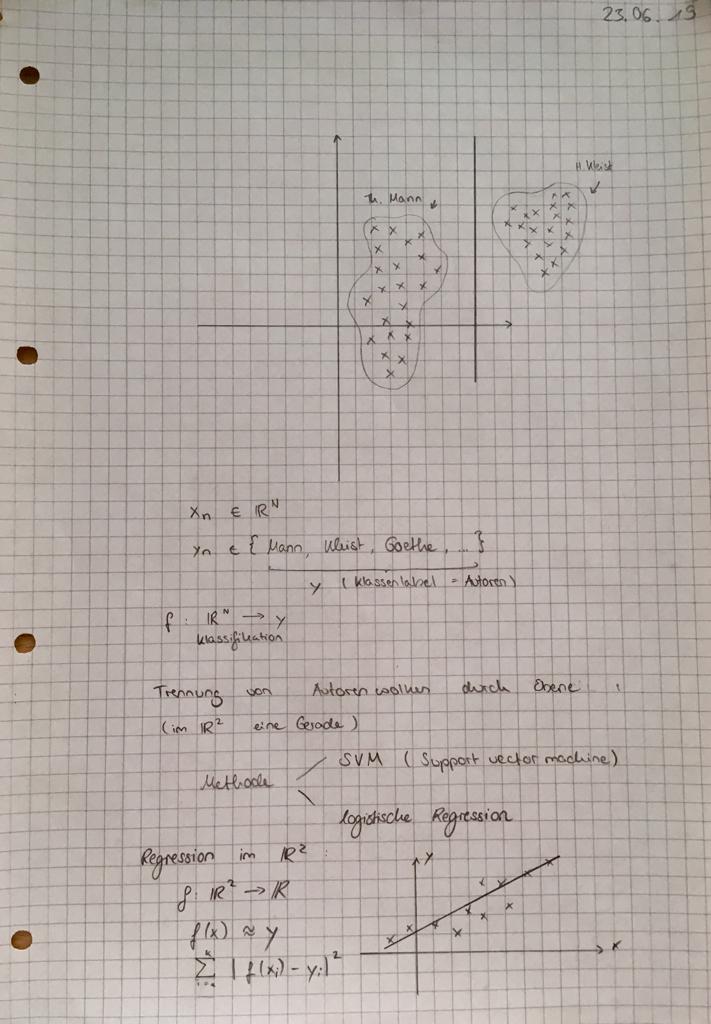 23.06.19
H. Kleist
Th. Mann
xₙ ∈ ℝᴺ
yₙ ∈ { Mann, Kleist, Goethe, ... }
y (Klassenlabel = Autoren)
f : ℝᴺ → y
Klassifikation
Trennung von Autorenwolken durch Ebene
(im ℝ² eine Gerade)
SVM (Support vector machine)
Methode
logistische Regression
Regression im ℝ² :
y
f: ℝ² → ℝ
f(x) ≈ y
x
∑ | f(xᵢ) - yᵢ |²